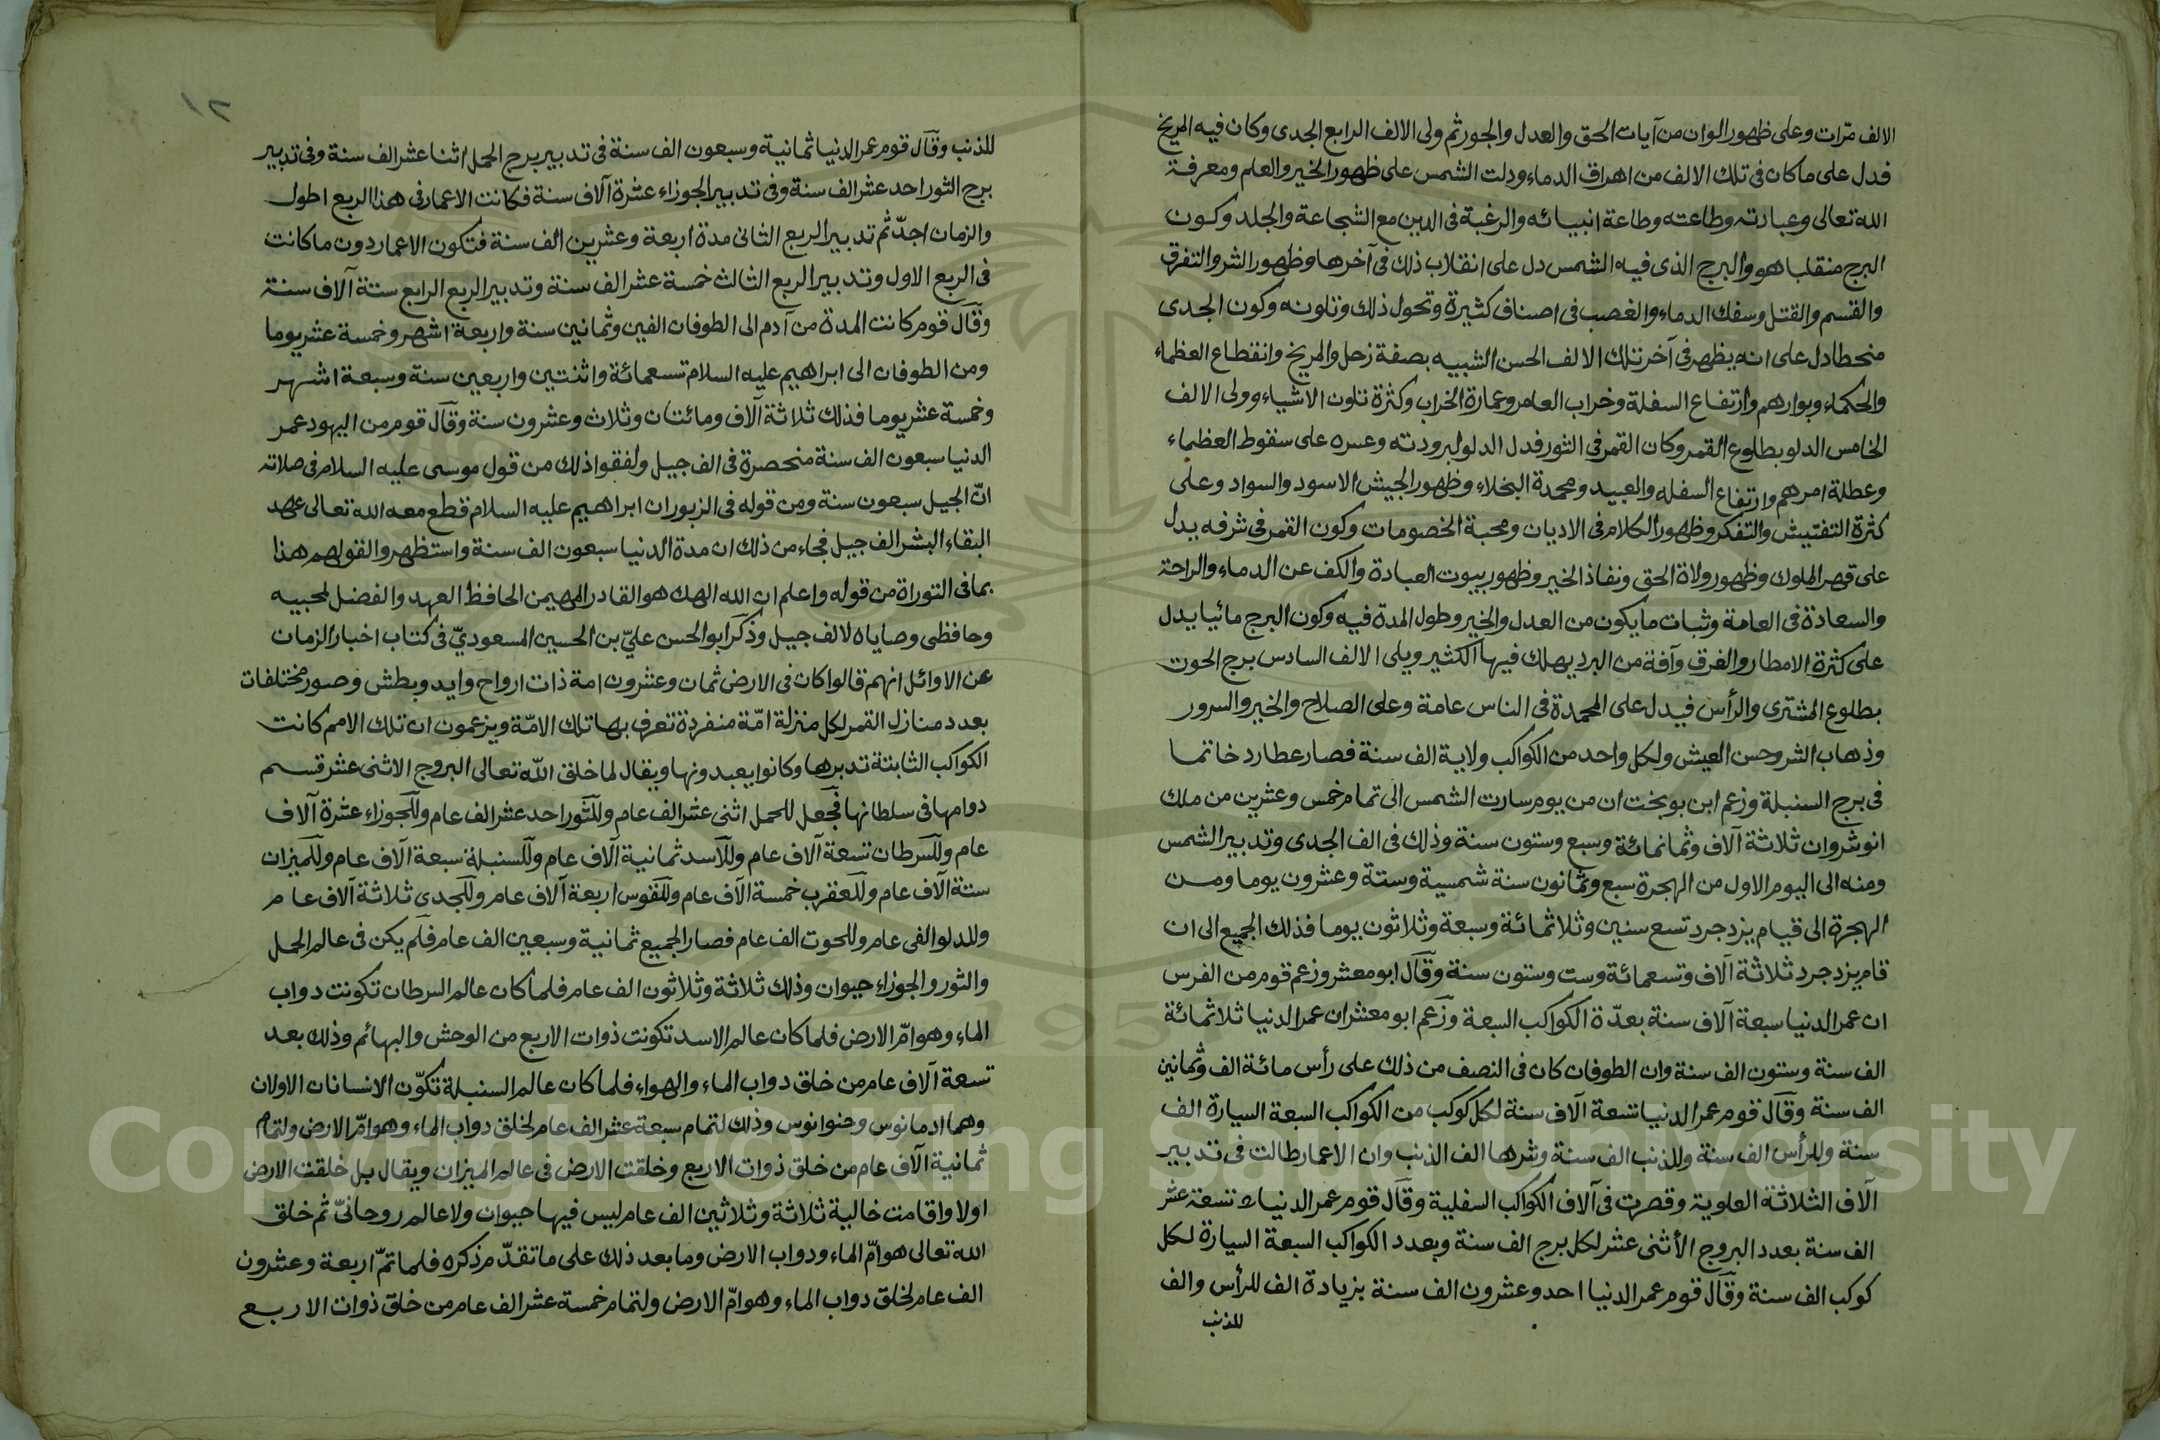 الالف مرّات وعلى ظهور الوان من آيات الحق والعدل والجور ثم ولى الالف الرابع الجدى وكان فيه المريخ
فدل على ما كان فى تلك الالف من اهراق الدماء ودلت الشمس على ظهور الخير والعلم ومعرفة
الله تعالى وعبادته وطاعته وطاعة انبيائه والرغبة فى الدين مع الشجاعة والجلد وكون
البرج منقلبا هو والبرج الذى فيه الشمس دل على انقلاب ذلك فى آخرها وظهور الشر والتفرق
والقسم والقتل وسفك الدماء والغصب فى اصناف كثيرة وتحول ذلك وتلونه وكون الجدى
منحطا دل على انه يظهر فى آخر تلك الالف الحسن الشبيه بصفة زحل والمريخ وانقطاع العظماء
والحكماء وبوارهم وارتفاع السفلة وخراب العامر وعمارة الخراب وكثرة تلون الاشياء وولى الالف
الخامس الدلو بطلوع القمر وكان القمر فى الثور فدل الدلو لبرودته وعسره على سقوط العظماء
وعطلة امرهم وارتفاع السفله والعبيد ومحمدة البخلاء وظهور الجيش الاسود والسواد وعلى
كثرة التفتيش والتفكر وظهور الكلام فى الاديان ومحبة الخصومات وكون القمر فى شرفه يدل
على قهر الملوك وظهور ولاة الحق ونفاذ الخير وظهور بيوت العبادة والكف عن الدماء والراحة
والسعادة فى العامة وثبات ما يكون من العدل والخير وطول المدة فيه وكون البرج مائيا يدل
على كثرة الامطار والغرق وآفة من البرد يهلك فيها الكثير ويلى الالف السادس برج الحوت
بطلوع المشترى والرأس فيدل على المحمدة فى الناس عامة وعلى الصلاح والخير والسرور
وذهاب الشر وحسن العيش ولكل واحد من الكواكب ولاية الف سنة فصار عطارد خاتما
فى برج السنبلة وزعم ابن بوبخت ان من يوم سارت الشمس الى تمام خمس وعشرين من ملك
انوشروان ثلاثة آلاف وثمانمائة وسبع وستون سنة وذلك فى الف الجدى وتدبير الشمس
ومنه الى اليوم الاول من الهجرة سبع وثمانون سنة شمسية وستة وعشرون يوما ومن
الهجرة الى قيام يزدجرد تسع سنين وثلاثمائة وسبعة وثلاثون يوما فذلك الجميع الى ان
قام يزدجرد ثلاثة آلاف وتسعمائة وست وستون سنة وقال ابو معشر وزعم قوم من الفرس
ان عمر الدنيا سبعة آلاف سنة بعدّة الكواكب السبعة وزعم ابو معشر ان عمر الدنيا ثلاثمائة
الف سنة وستون الف سنة وان الطوفان كان فى النصف من ذلك على رأس مائة الف وثمانين
الف سنة وقال قوم عمر الدنيا تسعة آلاف سنة لكل كوكب من الكواكب السبعة السيارة الف
سنة وللرأس الف سنة وللذنب الف سنة وشرها الف الذنب وان الاعمار طالت فى تدبير
آلاف الثلاثة العلوية وقصرت فى آلاف الكواكب السفلية وقال قوم عمر الدنيا تسعة عشر
الف سنة بعدد البروج الأثنى عشر لكل برج الف سنة وبعدد الكواكب السبعة السيارة لكل
كوكب الف سنة وقال قوم عمر الدنيا احد وعشرون الف سنة بزيادة الف للرأس والف
للذنب
١٢
للذنب وقال قوم عمر الدنيا ثمانية وسبعون الف سنة فى تدبير برج الحمل اثنا عشر الف سنة وفى تدبير
برج الثور احد عشر الف سنة وفى تدبير الجوزاء عشرة آلاف سنة فكانت الاعمار فى هذا الربع اطول
والزمان اجدّ ثم تدبير الربع الثانى مدة اربعة وعشرين الف سنة فتكون الاعمار دون ما كانت
فى الربع الاول وتدبير الربع الثالث خمسة عشر الف سنة وتدبير الربع الرابع ستة آلاف سنة
وقال قوم كانت المدة من آدم الى الطوفان الفين وثمانين سنة واربعة اشهر وخمسة عشر يوما
ومن الطوفان الى ابراهيم عليه السلام تسعمائة واثنتين واربعين سنة وسبعة اشهر
وخمسة عشر يوما فذلك ثلاثة آلاف ومائتان وثلاث وعشرون سنة وقال قوم من اليهود عمر
الدنيا سبعون الف سنة منحصرة فى الف جيل ولفقوا ذلك من قول موسى عليه السلام فى صلاته
انّ الجيل سبعون سنة ومن قوله فى الزبور ان ابراهيم عليه السلام قطع معه الله تعالى عهد
البقاء البشر الف جيل فجاء من ذلك ان مدة الدنيا سبعون الف سنة واستظهروا لقولهم هذا
بما فى التوراة من قوله واعلم ان الله الهك هو القادر المهيمن الحافظ العهد والفضل لمحبيه
وحافظى وصاياه لالف جيل وذكر ابو الحسن عليّ بن الحسين المسعوديّ فى كتاب اخبار الزمان
عن الاوائل انهم قالوا كان فى الارض ثمان وعشرون امة ذات ارواح وايد وبطش وصور مختلفات
بعدد منازل القمر لكل منزلة امّة منفردة تعرف بها تلك الامّة ويزعمون ان تلك الامم كانت
الكواكب الثابتة تدبرها وكانوا يعبدونها ويقال لما خلق الله تعالى البروج الاثنى عشر قسم
دوامها فى سلطانها فجعل للحمل اثنى عشر الف عام وللثور احد عشر الف عام وللجوزاء عشرة آلاف
عام وللسرطان تسعة آلاف عام وللاسد ثمانية آلاف عام وللسنبلة سبعة آلاف عام وللميزان
ستة آلاف عام وللعقرب خمسة آلاف عام وللقوس اربعة آلاف عام وللجدى ثلاثة آلاف عام
وللدلو الفى عام وللحوت الف عام فصار الجميع ثمانية وسبعين الف عام فلم يكن فى عالم الحمل
والثور والجوزاء حيوان وذلك ثلاثة وثلاثون الف عام فلما كان عالم السرطان تكونت دواب
الماء وهوامّ الارض فلما كان عالم الاسد تكونت ذوات الاربع من الوحش والبهائم وذلك بعد
تسعة آلاف عام من خلق دواب الماء والهواء فلما كان عالم السنبلة تكوّن الانسانان الاولان
وهما ادمانوس وحنوانوس وذلك لتمام سبعة عشر الف عام لخلق دواب الماء وهوامّ الارض ولتمام
ثمانية آلاف عام من خلق ذوات الاربع وخلقت الارض فى عالم الميزان ويقال بل خلقت الارض
اولا واقامت خالية ثلاثة وثلاثين الف عام ليس فيها حيوان ولا عالم روحانىّ ثم خلق
الله تعالى هوامّ الماء ودواب الارض وما بعد ذلك على ما تقدّم ذكره فلما تمّ اربعة وعشرون
الف عام لخلق دواب الماء وهوامّ الارض ولتمام خمسة عشر الف عام من خلق ذوات الاربع
Copyright © King Saud University
195